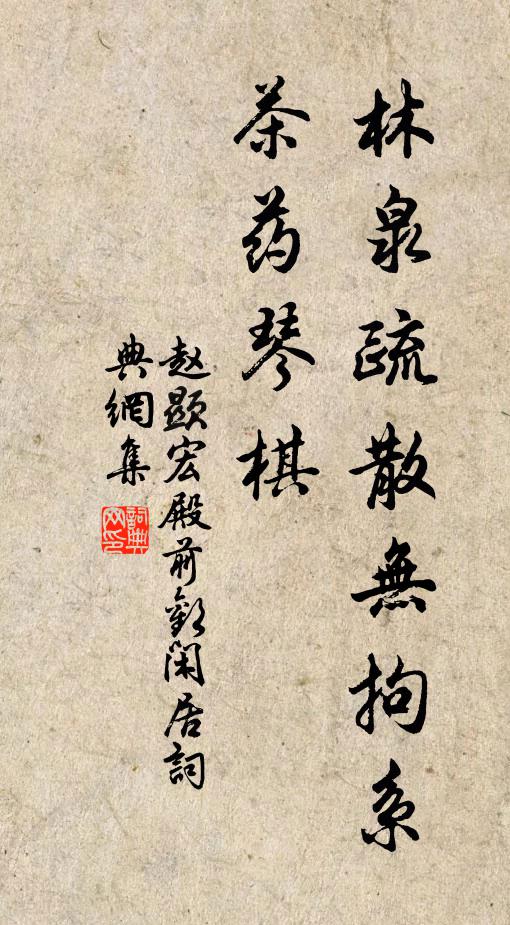 林泉疏散無拘系
茶药琴棋
赵顯宏殿前歡閑居詞
典網集
詞典网印